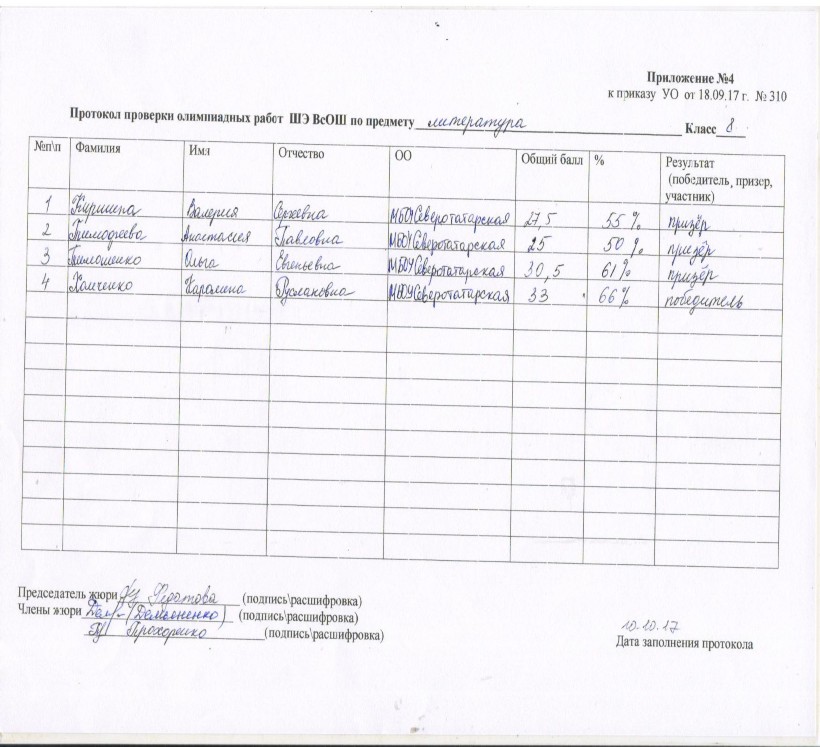 Приложение №4
к приказу УО от 18.09.17 г. № 310
Протокол проверки олимпиадных работ ШЭ ВсОШ по предмету литература Класс 8
№п\п Фамилия Имя Отчество ОО Общий балл % Результат
(победитель, призер,
участник)
1 Киришина Валерия Сергеевна МБОУ Северотатарская 27,5 55 % призёр
2 Тимофеева Анастасия Павловна МБОУ Северотатарская 25 50 % призёр
3 Тимошенко Ольга Евгеньевна МБОУ Северотатарская 30,5 61% призёр
4 Хомченко Каролина Руслановна МБОУ Северотатарская 33 66 % победитель
Председатель жюри Федотова (подпись\расшифровка)
Члены жюри (Демьяненко) (подпись\расшифровка)
Прохоренко (подпись\расшифровка)
10.10.17
Дата заполнения протокола